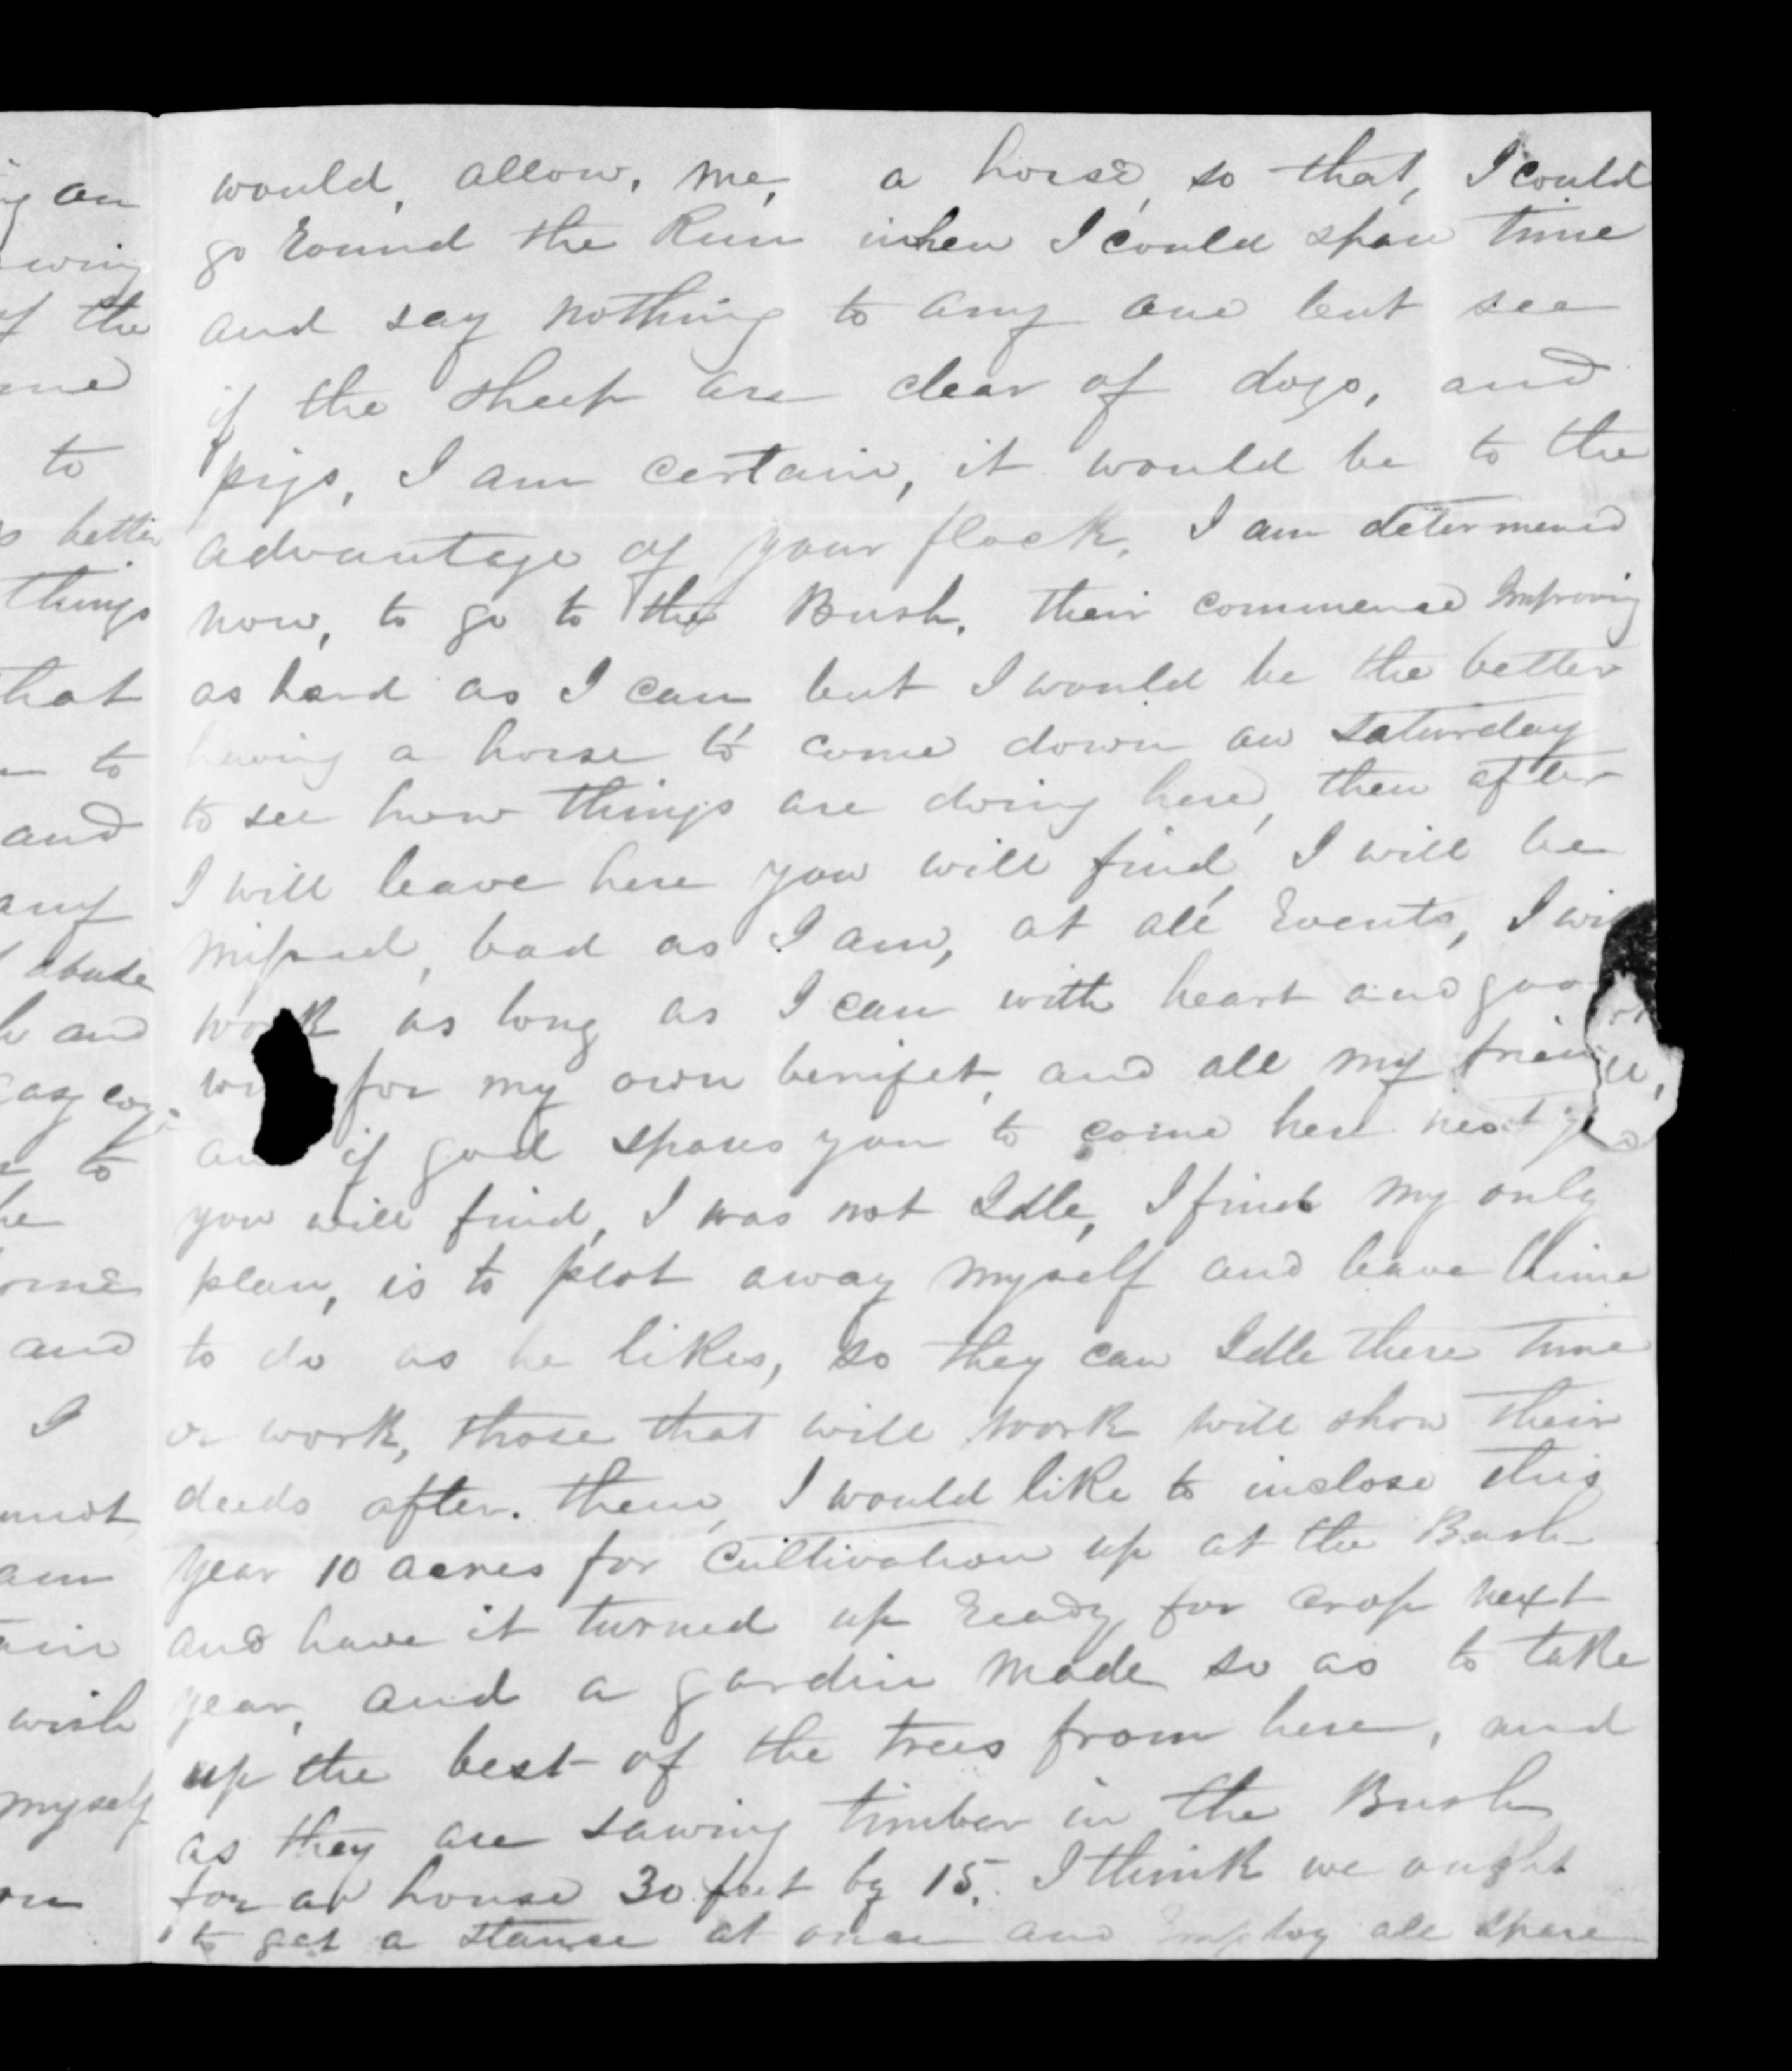 would, allow, me, a horse, so that, I could
go Round the Run when I could spare time
and say nothing to any one but see
if the sheep are clear of dogs, and
pigs, I am certain, it would be to the
advantage of your flock, I am determened
now, to go to the Bush. their commence Improving
as hard as I can but I would be the better
having a horse to come down on saturday
to see how things are doing here, then after
I will leave here you will find, I will be
missed, bad as I am, at all Events, I will
work as long as I can with heart and goo
wi for my own benifet, and all my frien
an if god spares you to come here next ye
you will find, I was not Idle, I find my only
plan, is to plot away myself and leave
to do as he likes, so they can Idle there time
or work, those that will work will show their
deeds after. them, I would like to inclose this
year 10 acres for Cultivation up at the Bush
and have it turned up Ready for crop next
year, and a gardin made so as to take
up the best of the trees from here, and
as they are sawing timber in the Bush
for a house 30 feet by 15. I think we ought
to get a stance at once and Employ all spare
an
wing
of the
me
to
better
things
that
to
and
any
abuse
and
to
he
and
I
am
wish
myself